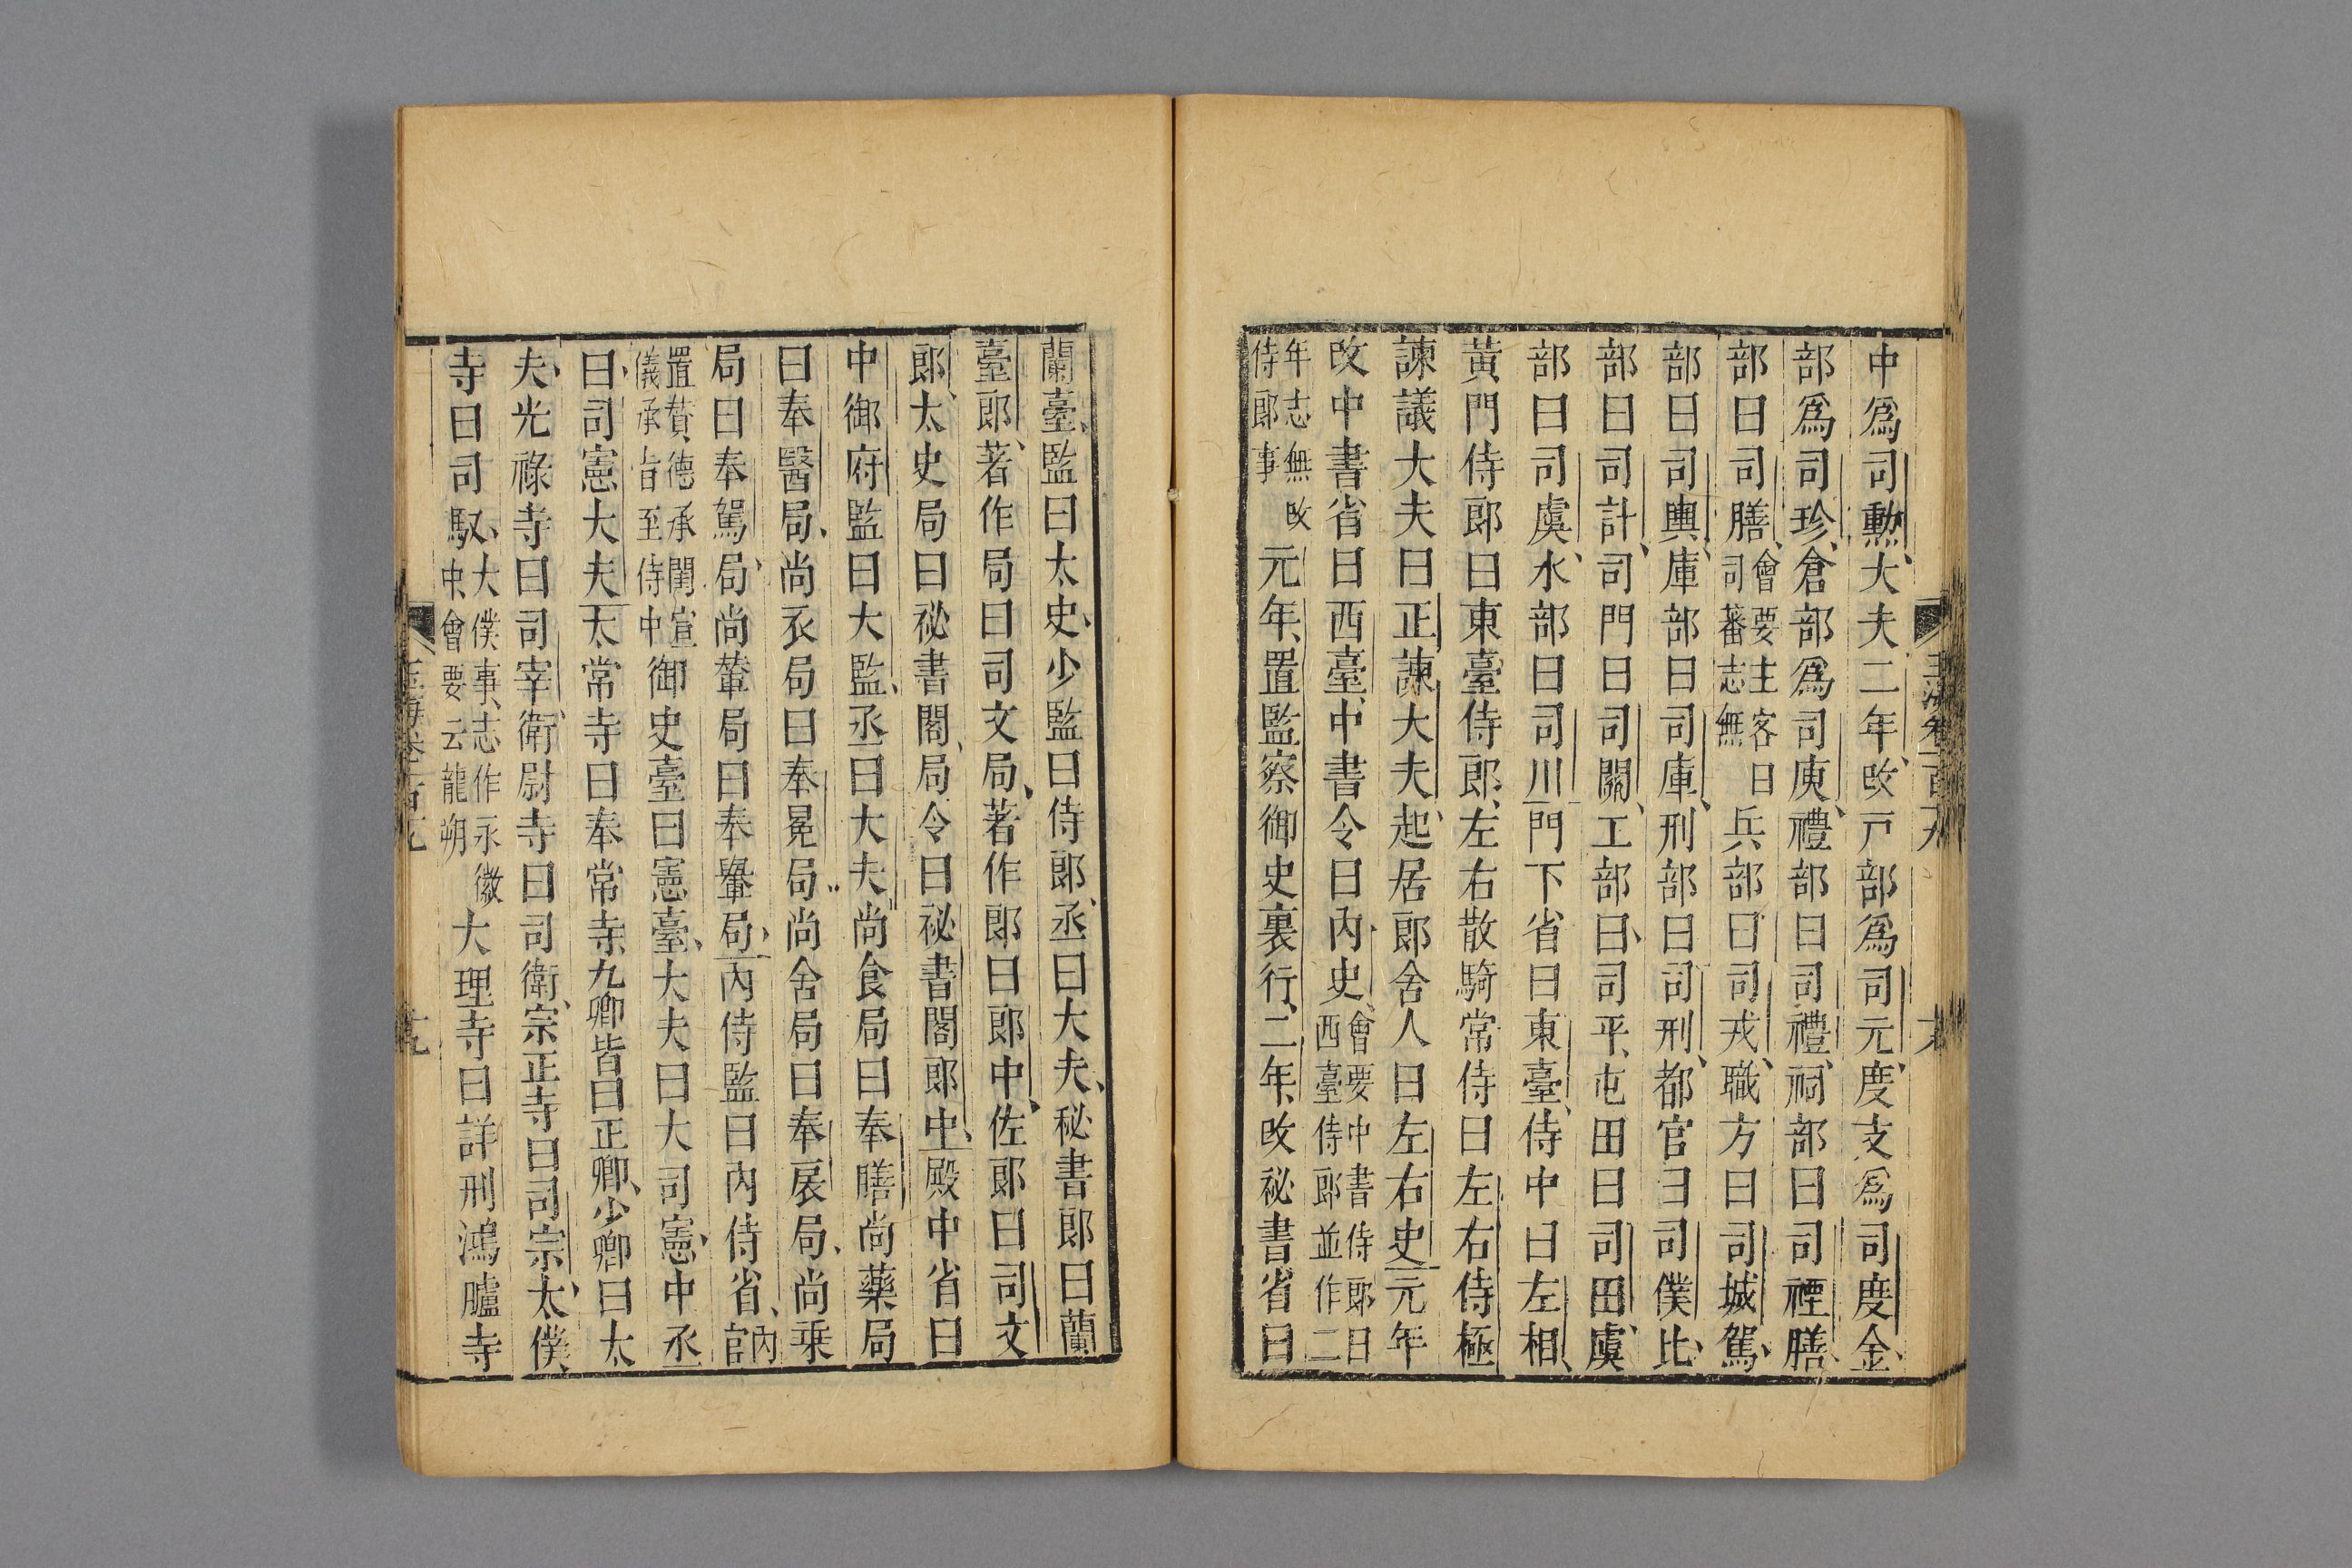 中爲司勲大夫二年改戸部爲司元度支爲司度金
部爲司珍倉部爲司庾禮部曰司禮祠部曰司禋膳
部曰司膳會要主客曰司蕃志無兵部曰司戎職方曰司城駕
部曰司輿庫部曰司庫刑部曰司刑都官曰司僕比
部曰司計司門曰司關工部曰司平屯田曰司田虞
部曰司虞水部曰司川門下省曰東臺侍中曰左相
黃門侍郎曰東臺侍郎左右散騎常侍曰左右侍極
諫議大夫曰正諫大夫起居郎舍人曰左右史元年
改中書省曰西臺中書令曰內史會要中書侍郎曰西臺侍郎並作二
年志無改侍郎事元年置監察御史裏行二年改祕書省曰
蘭臺監曰太史少監曰侍郎丞曰大夫秘書郎曰蘭
臺郎著作局曰司文局著作郎曰郎中佐郎曰司文
郎太史局曰祕書閣局令曰祕書閣郎中殿中省曰
中御府監曰大監丞曰大夫尚食局曰奉膳尚藥局
曰奉醫局尚衣局曰奉冕局尚舍局曰奉扆局尚乗
局曰奉駕局尚輦局曰奉轝局內侍監曰內侍省內官
置賛德承閨宣儀承旨至侍中御史臺曰憲臺大夫曰大司憲中丞
曰司憲大夫太常寺曰奉常寺九卿皆曰正卿少卿曰太
夫光祿寺曰司宰衛尉寺曰司衛宗正寺曰司宗太僕
寺曰司馭大僕事志作永徽中會要云龍朔大理寺曰詳刑鴻臚寺